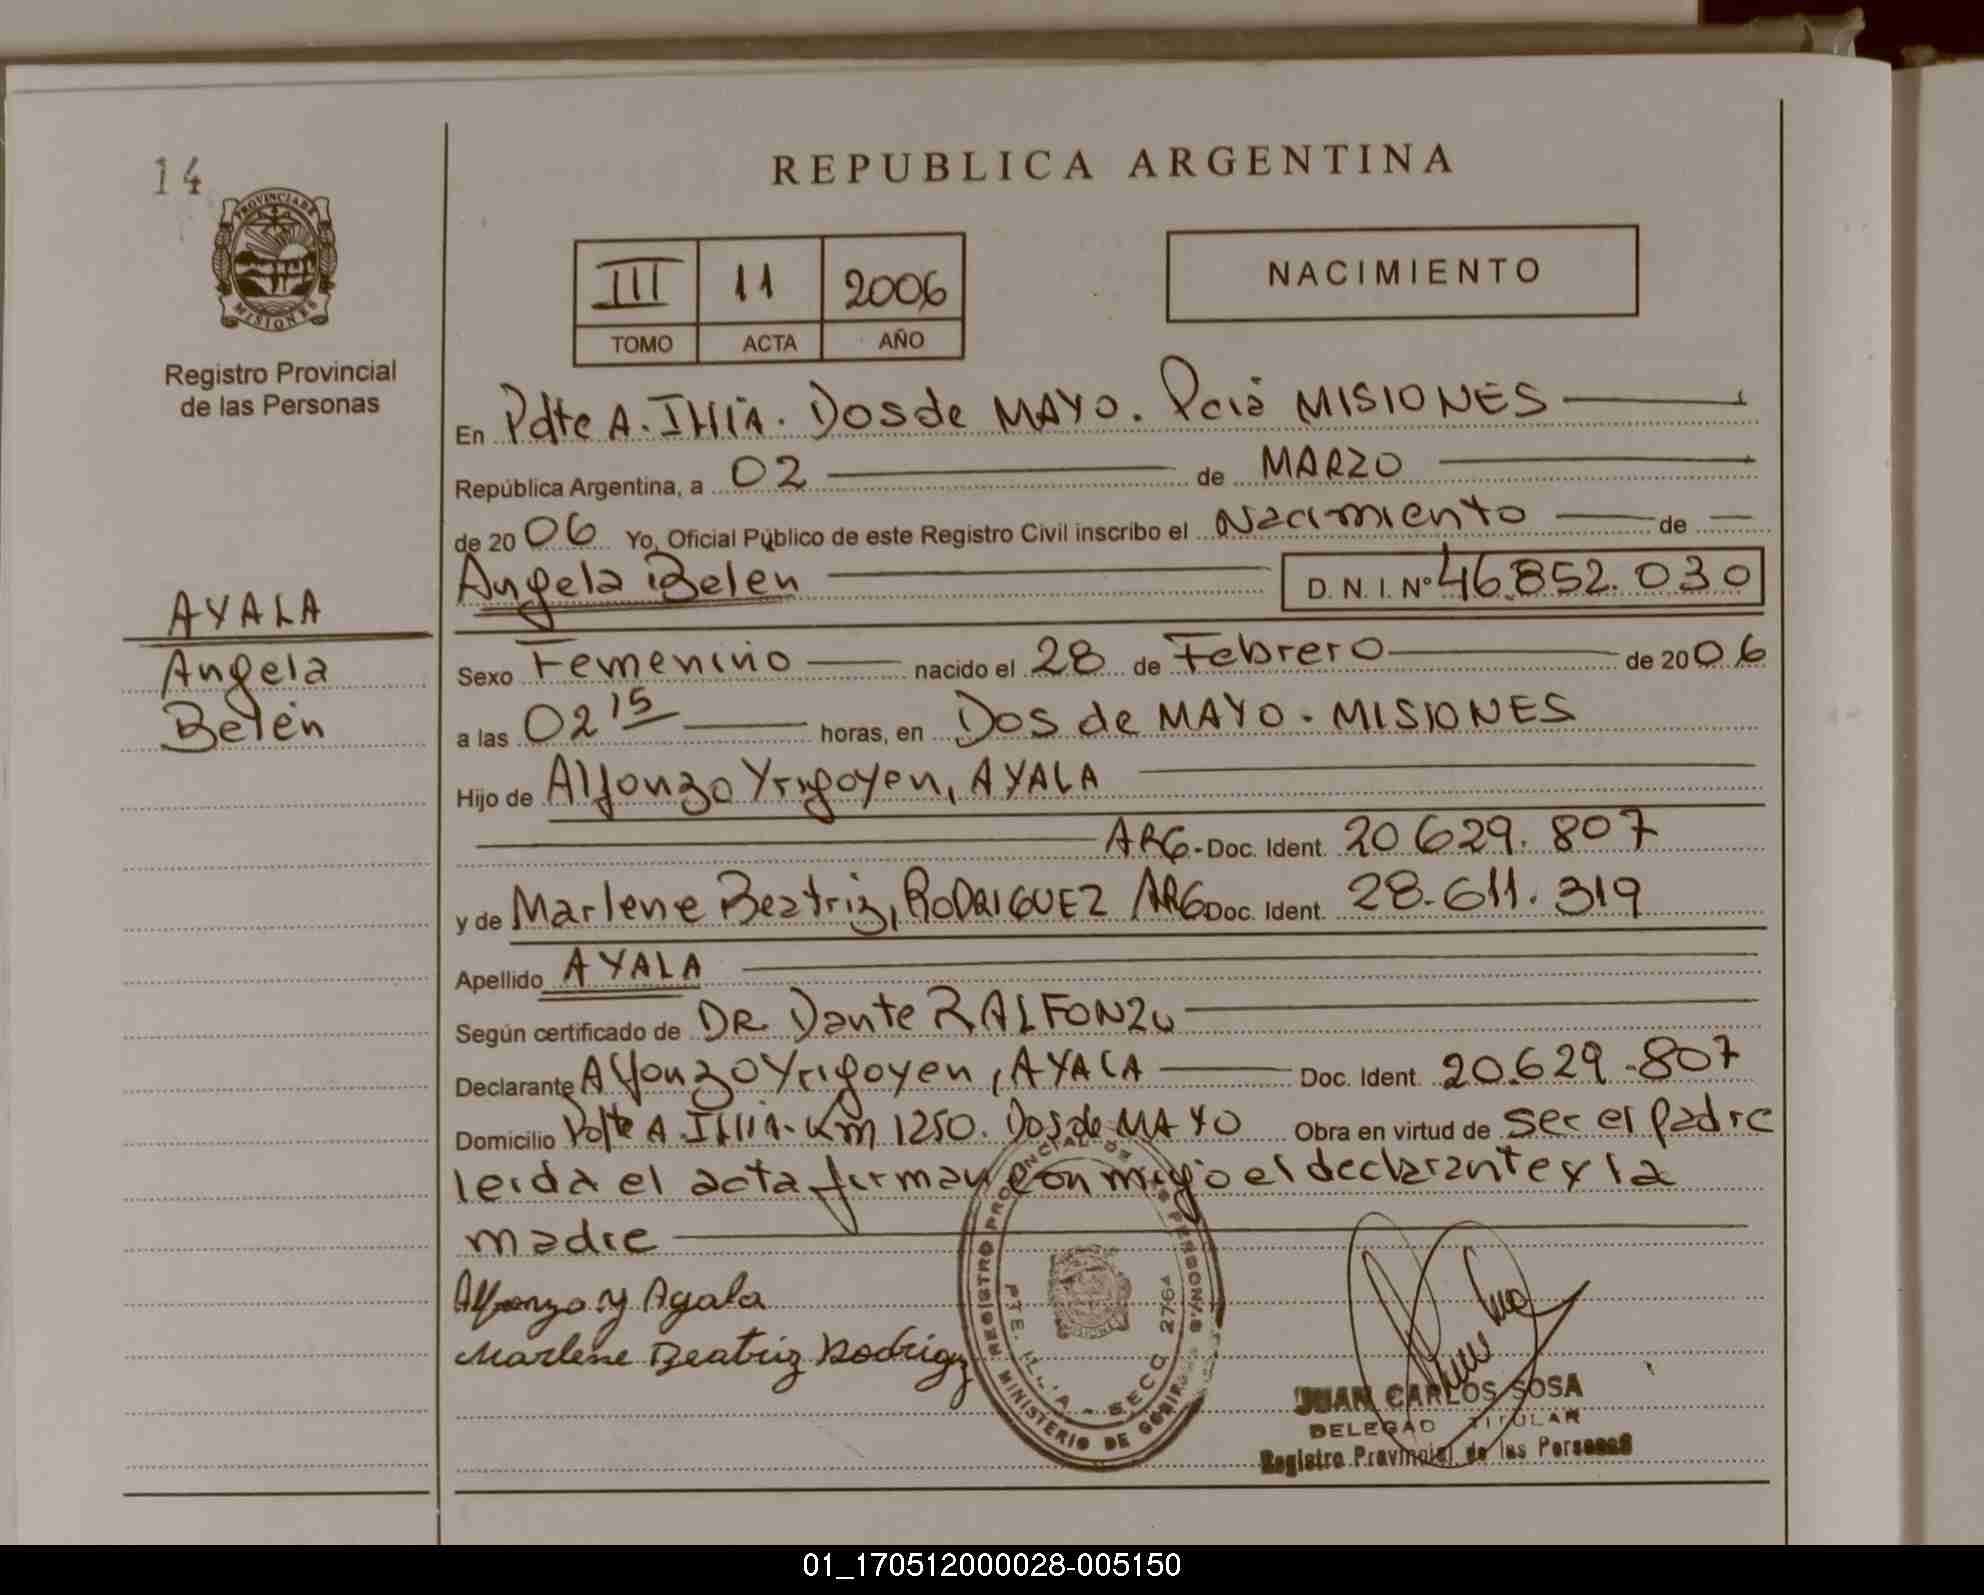 14
PROVINCIA DE
MISIONES
Registro Provincial
de las Personas
AYALA
Angela
Belén
REPUBLICA ARGENTINA
III 11 2006
TOMO ACTA AÑO
NACIMIENTO
En Pdte A. Illia. Dos de MAYO. Pcia MISIONES
República Argentina, a 02 de MARZO
de 2006 Yo, Oficial Público de este Registro Civil inscribo el Nacimiento de
Angela Belen D. N. I. Nº 46.852.030
Sexo Femenino nacido el 28 de Febrero de 2006
a las 02 15 horas, en Dos de MAYO. MISIONES
Hijo de Alfonzo Yrigoyen, AYALA
ARG. Doc. Ident. 20.629.807
y de Marlene Beatriz, RODRIGUEZ ARG Doc. Ident. 28.611.319
Apellido AYALA
Según certificado de DR. Dante R ALFONZO
Declarante Alfonzo Yrigoyen, AYALA Doc. Ident. 20.629.807
Domicilio Pdte A. Illia. Km 1250. Dos de MAYO Obra en virtud de ser el padre
leida el acta firman conmigo el declarante y la
madre
Alfonzo Y Ayala
Marlene Beatriz Rodrigz
REGISTRO PROVINCIAL DE LAS PERSONAS
MINISTERIO DE GOBIERNO
PTE. ILLIA - SECC 2764
JUAN CARLOS SOSA
DELEGADO TITULAR
Registro Provincial de las Personas
01_170512000028-005150